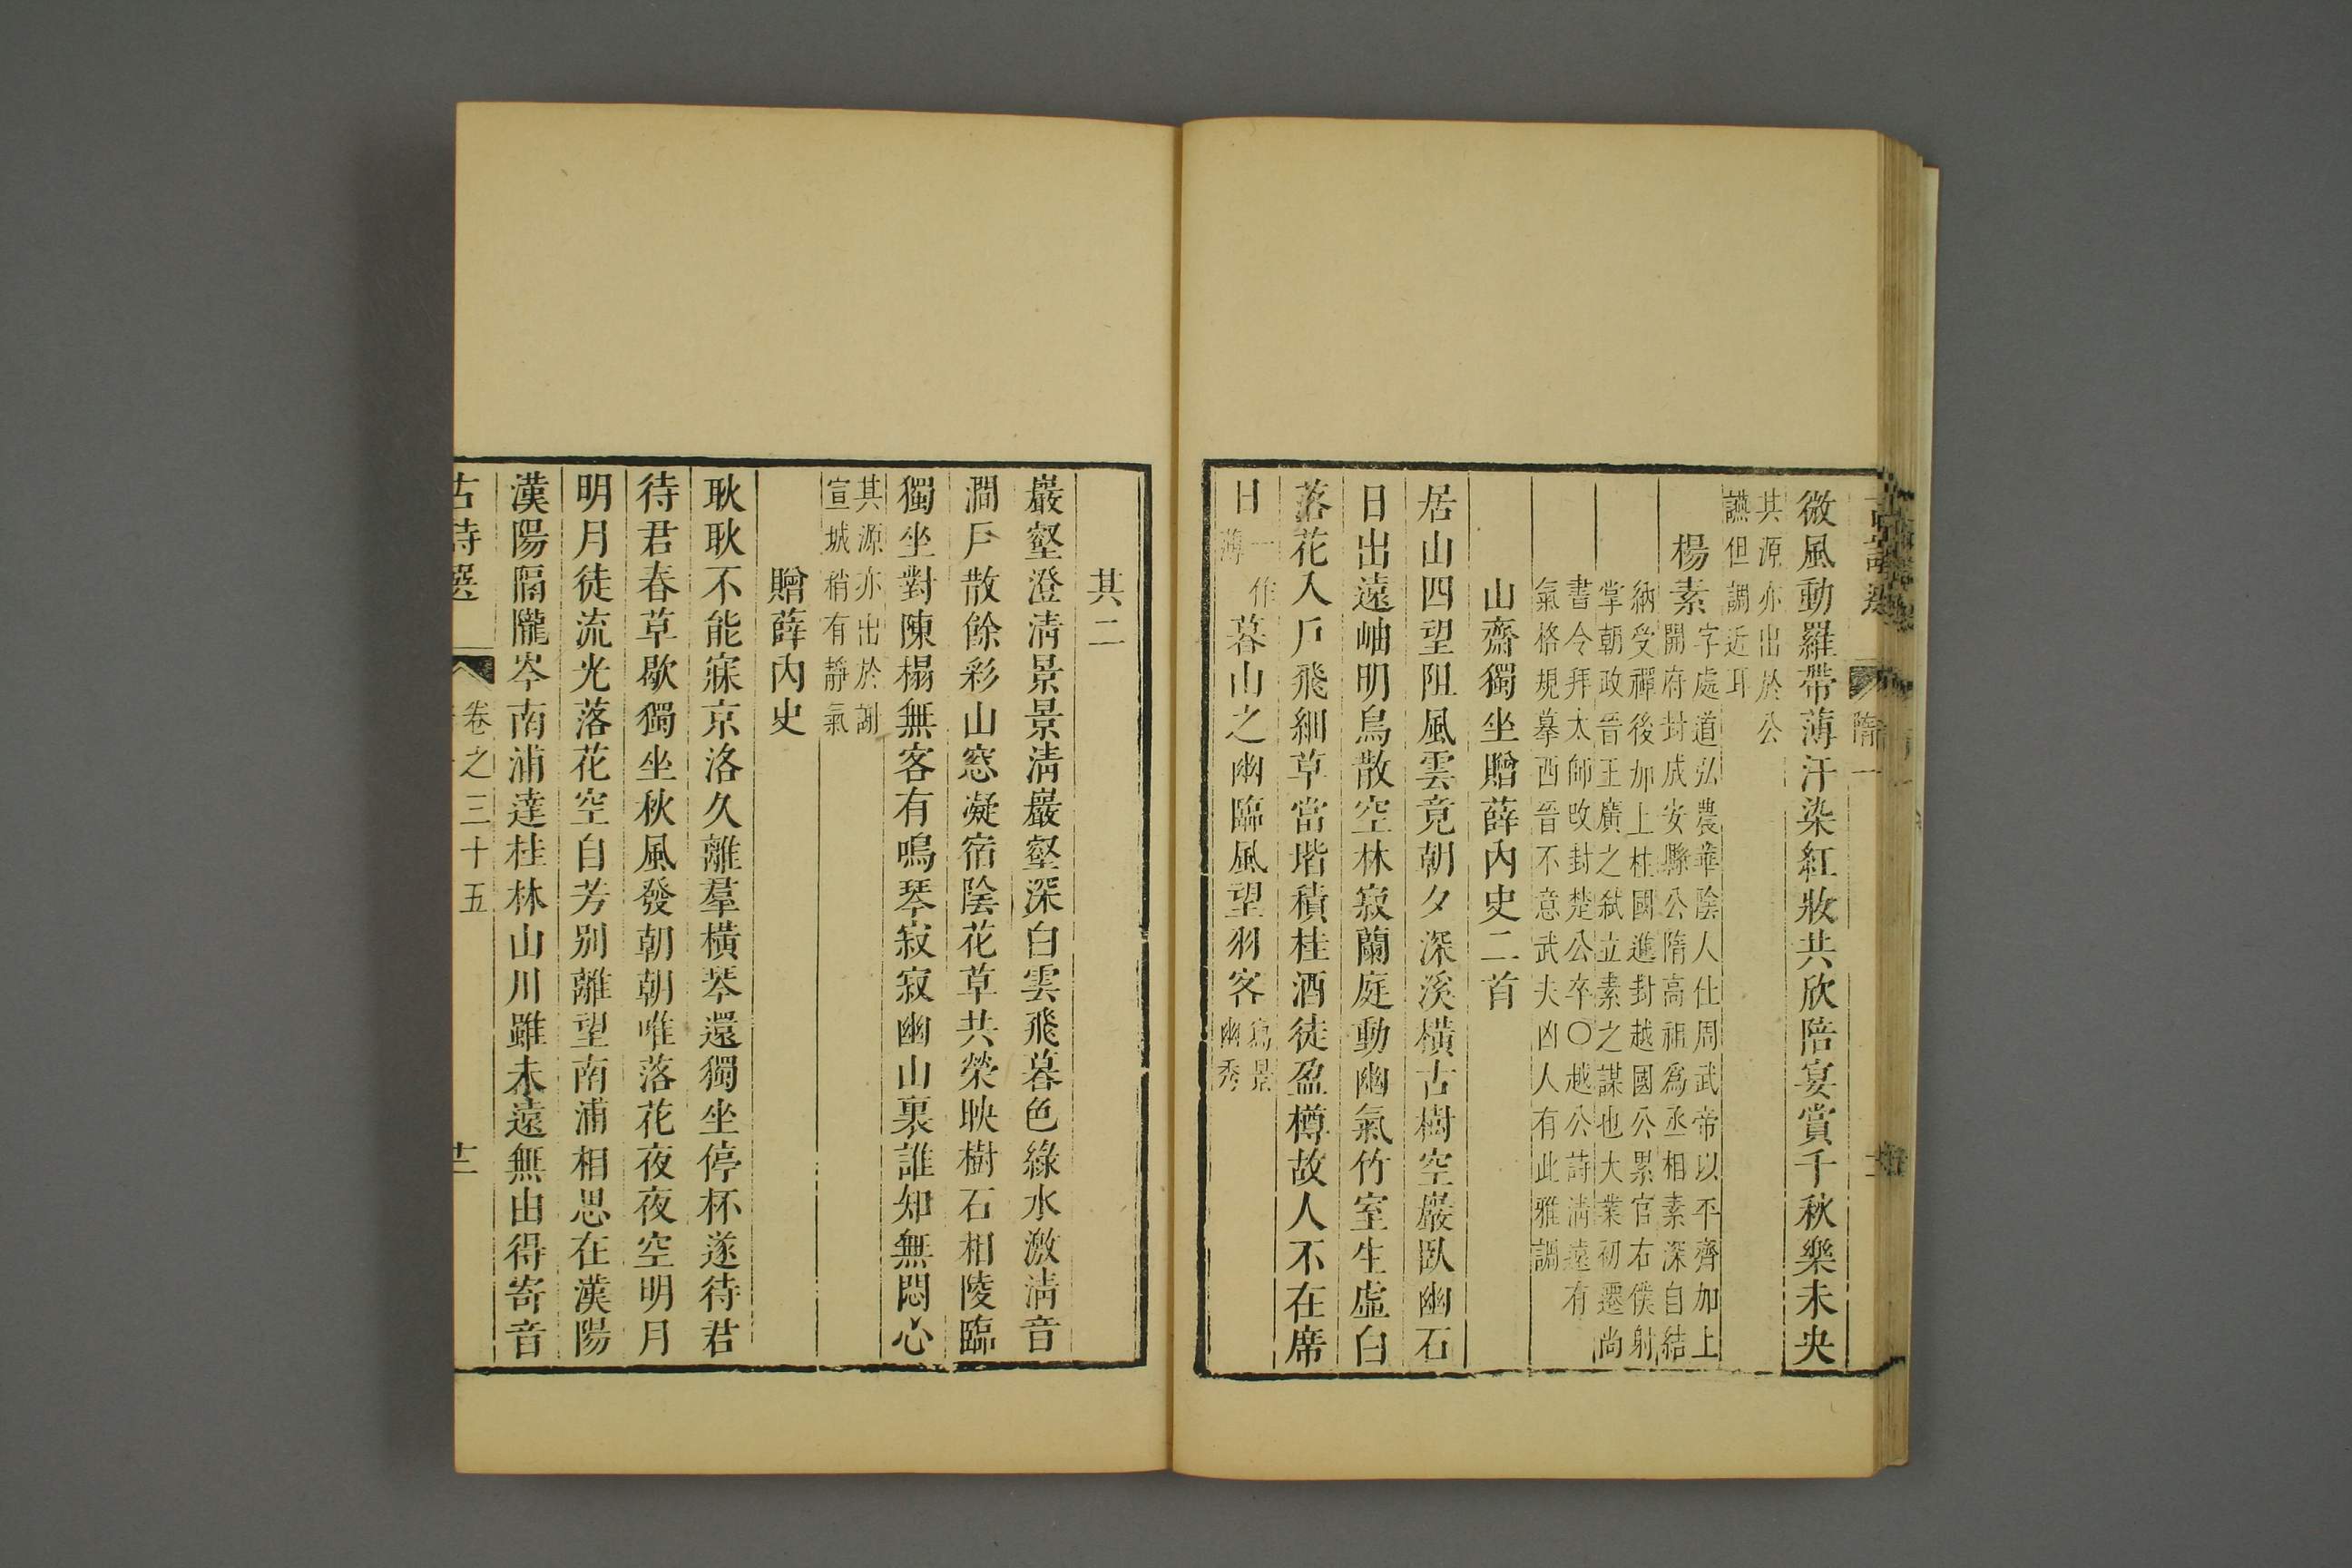 隋一
微風動羅帶薄汗染紅妝共欣陪宴賞千秋樂未央
其源亦出於公
讌但調近耳
楊素
字處道弘農華陰人仕周武帝以平齊加上
開府封成安縣公隋高祖為丞相素深自結
納受禪後加上柱國進封越國公累官右僕射
掌朝政晉王廣之弒立素之謀也大業初遷尚
書令拜太師改封楚公卒〇越公詩清遠有
氣格規摹西晉不意武夫凶人有此雅調
山齋獨坐贈薛內史二首
居山四望阻風雲竟朝夕深溪橫古樹空巖臥幽石
日出遠岫明鳥散空林寂蘭庭動幽氣竹室生虛白
落花入戶飛細草當堦積桂酒徒盈樽故人不在席
日
一作
薄
暮山之幽臨風望羽客
寫景
幽秀
其二
巖壑澄清景景清巖壑深白雲飛暮色綠水激清音
澗戶散餘彩山窓凝宿陰花草共榮映樹石相陵臨
獨坐對陳榻無客有鳴琴寂寂幽山裏誰知無悶心
其源亦出於謝
宣城稍有靜氣
贈薛內史
耿耿不能寐京洛久離羣橫琴還獨坐停杯遂待君
待君春草歇獨坐秋風發朝朝唯落花夜夜空明月
明月徒流光落花空自芳別離望南浦相思在漢陽
漢陽隔隴岑南浦達桂林山川雖未遠無由得寄音
古詩選
卷之三十五